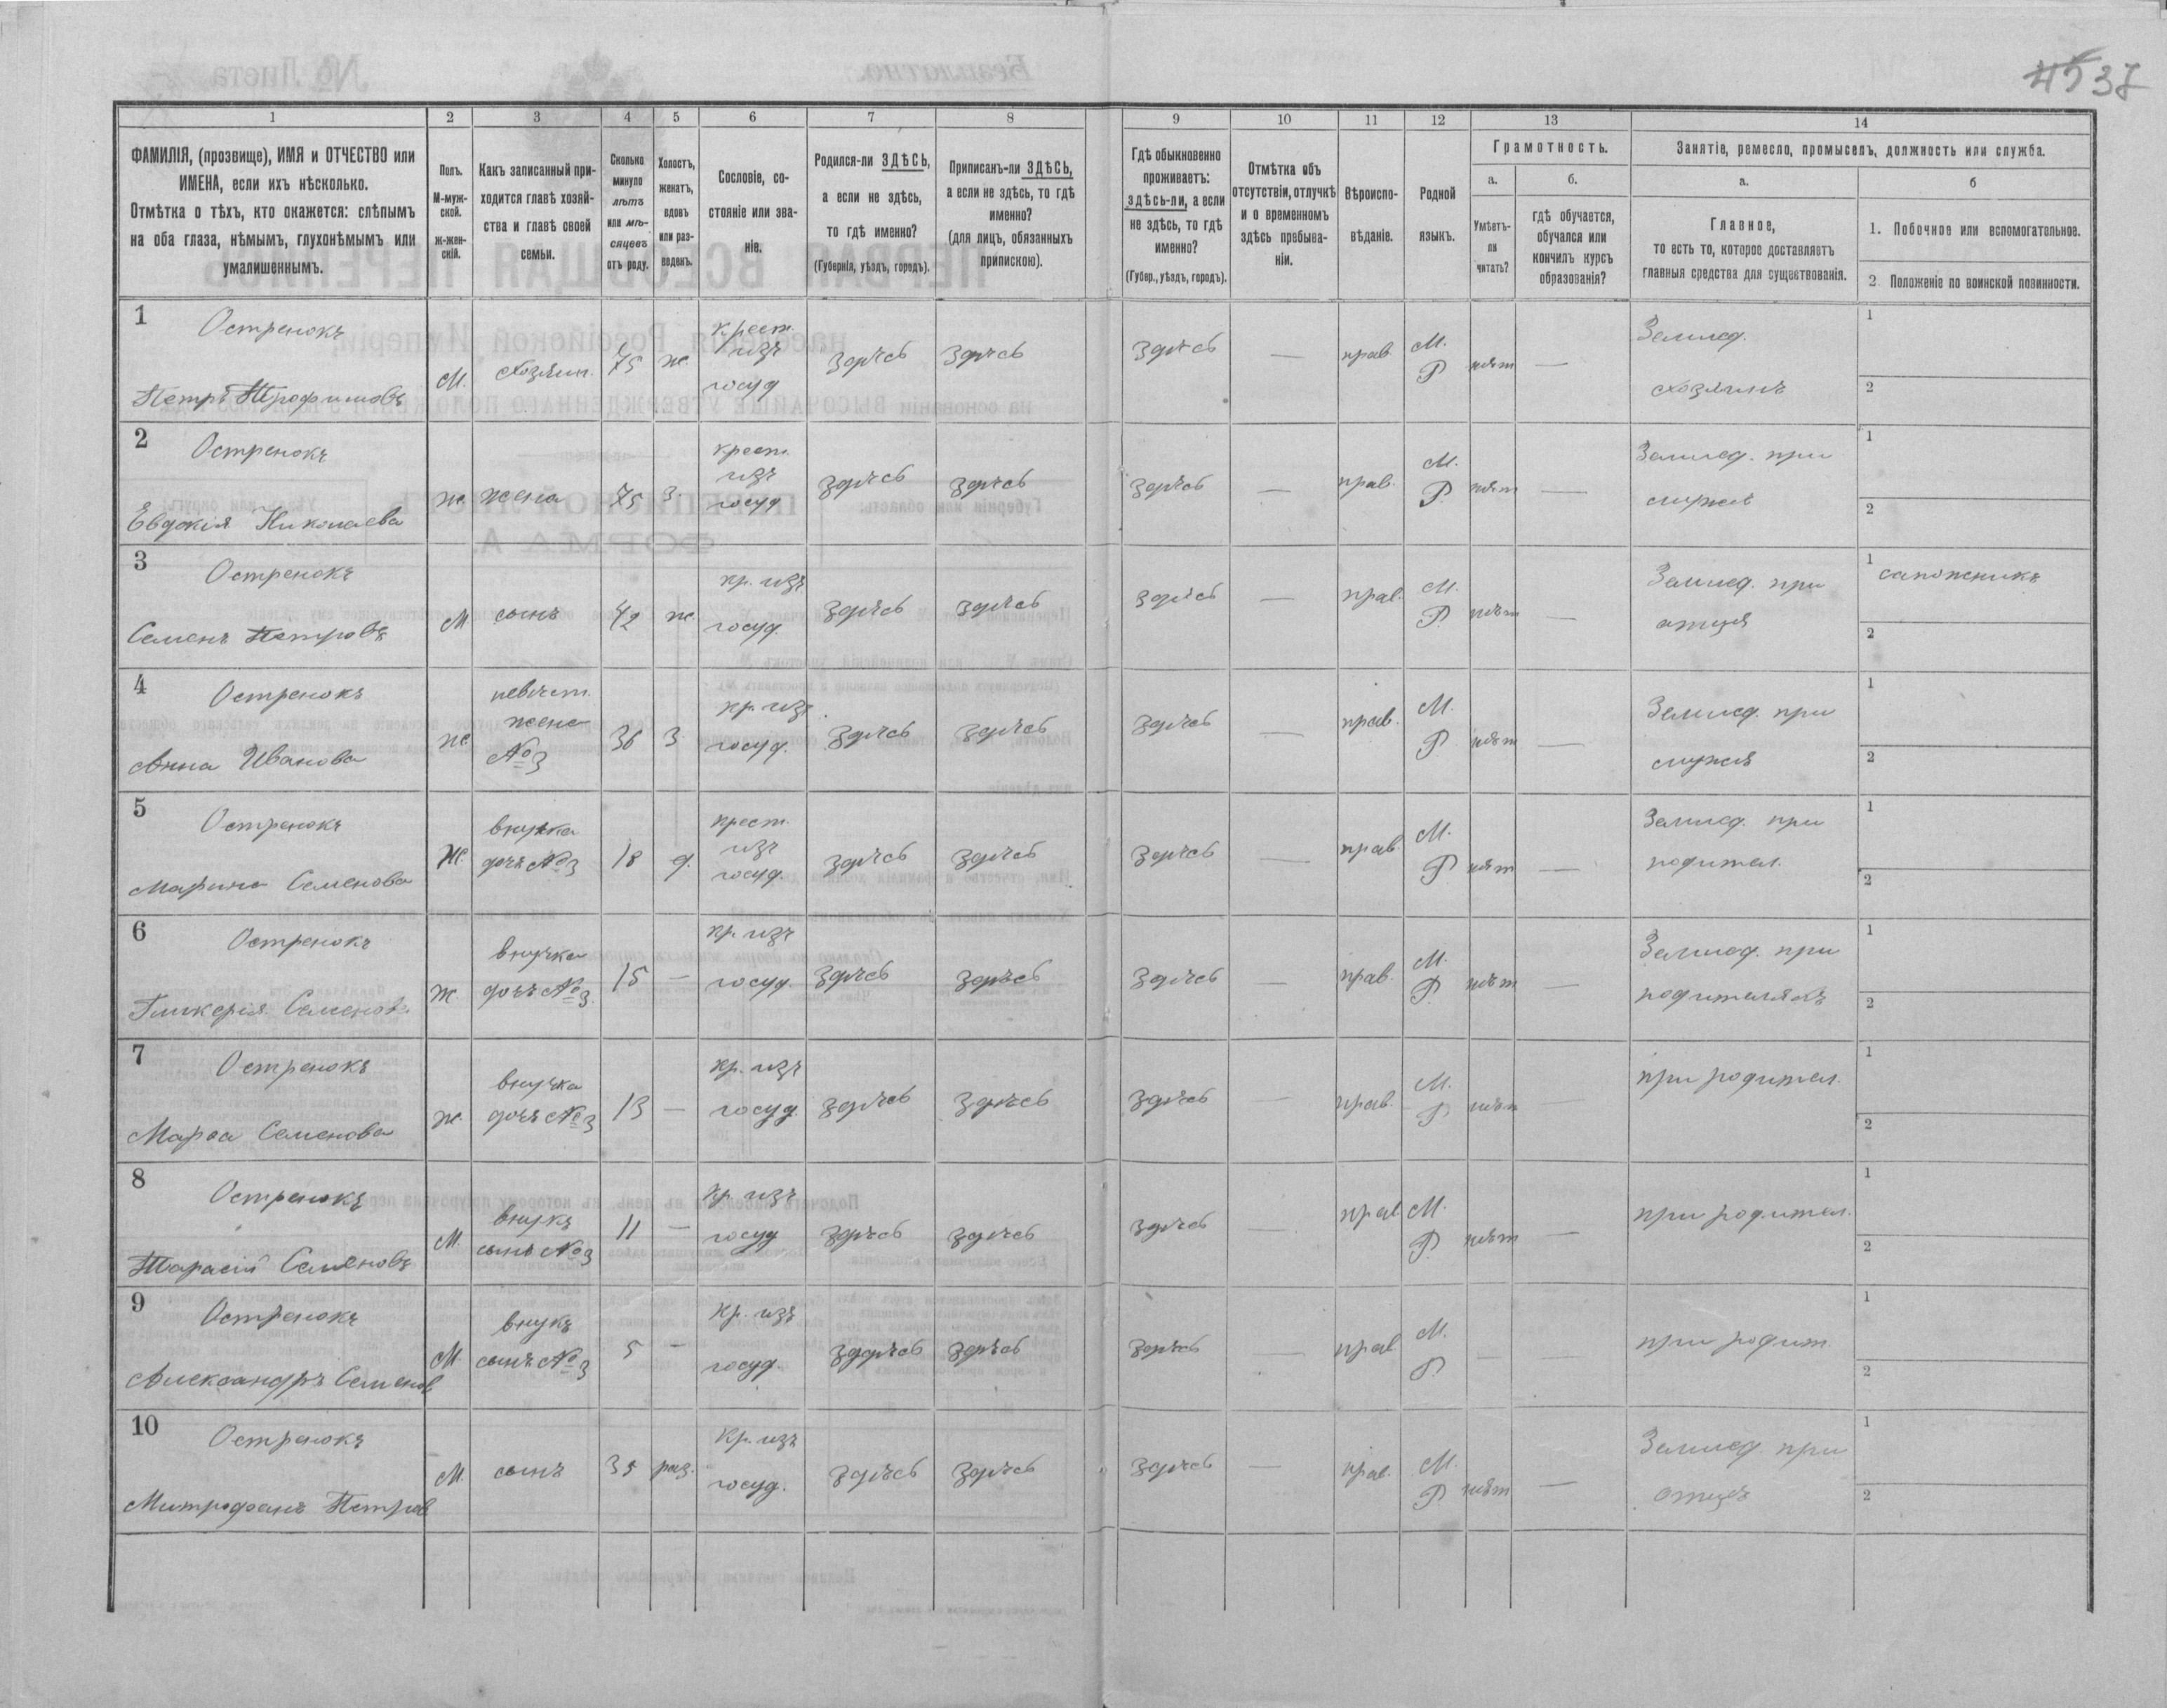 45 37
1 2 3 4 5 6 7 8 9 10 11 12 13 14
ФАМИЛІЯ, (прозвище), ИМЯ и ОТЧЕСТВО или
ИМЕНА, если ихъ нѣсколько.
Отмѣтка о тѣхъ, кто окажется: слѣпымъ
на оба глаза, нѣмымъ, глухонѣмымъ или
умалишеннымъ.
Полъ.
М-муж-
ской.
ж-жен-
скій.
Какъ записанный при-
ходится главѣ хозяй-
ства и главѣ своей
семьи.
Сколько
минуло
лѣтъ
или мѣ-
сяцевъ
отъ роду.
Холостъ,
женатъ,
вдовъ
или раз-
веденъ.
Сословіе, со-
стояніе или зва-
ніе.
Родился-ли ЗДѢСЬ,
а если не здѣсь,
то гдѣ именно?
(Губернія, уѣздъ, городъ).
Приписанъ-ли ЗДѢСЬ,
а если не здѣсь, то гдѣ
именно?
(для лицъ, обязанныхъ
припискою).
Гдѣ обыкновенно
проживаетъ:
здѣсь-ли, а если
не здѣсь, то гдѣ
именно?
(Губер., уѣздъ, городъ).
Отмѣтка объ
отсутствіи, отлучкѣ
и о временномъ
здѣсь пребыва-
ніи.
Вѣроиспо-
вѣданіе.
Родной
языкъ.
Грамотность.
а.
Умѣетъ-
ли
читать?
б.
гдѣ обучается,
обучался или
кончилъ курсъ
образованія?
Занятіе, ремесло, промыселъ, должность или служба.
а.
Главное,
то есть то, которое доставляетъ
главныя средства для существованія.
б
1. Побочное или вспомогательное.
2 Положеніе по воинской повинности.
1 Остренокъ
Петръ Трофимовъ
М. хозяин. 75 ж.
крест.
изъ
госуд
здѣсь здѣсь здѣсь — прав. М.
Р нѣт —
Землед.
хозяинъ
1
2
2 Остренокъ
Евдокія Николаева
ж жена 75 з.
крест.
изъ
госуд
здѣсь здѣсь здѣсь — прав. М.
Р. нѣт —
Землед. при
мужѣ
1
2
3 Остренокъ
Семенъ Петровъ
М сынъ 42 ж
кр. изъ
госуд.
здѣсь здѣсь здѣсь — прав. М.
Р. нѣт —
Землед. при
отцѣ
1 сапожникъ
2
4 Остренокъ
Анна Иванова
ж
невѣст.
жена
№ 3
36 з
кр. изъ
госуд.
здѣсь здѣсь здѣсь — прав. М.
Р нѣт —
Землед. при
мужѣ
1
2
5 Остренокъ
Марина Семенова
Ж
внучка
дочь № 3
18 д.
крест.
изъ
госуд.
здѣсь здѣсь здѣсь — прав. М.
Р нѣт —
Землед. при
родител.
1
2
6 Остренокъ
Гликерія Семенова
Ж
внучка
дочь № 3
15 —
кр. изъ
госуд.
здѣсь здѣсь здѣсь — прав. М.
Р. нѣт —
Землед. при
родителяхъ
1
2
7 Остренокъ
Марѳа Семенова
ж
внучка
дочь № 3
13 —
кр. изъ
госуд
здѣсь здѣсь здѣсь — прав. М.
Р нѣт —
при родител.
1
2
8 Остренокъ
Тарасій Семеновъ
М.
внукъ
сынъ № 3
11 —
кр изъ
госуд
здѣсь здѣсь здѣсь — прав М.
Р. нѣт —
при родител.
1
2
9 Остренокъ
Александръ Семенов
М
внукъ
сынъ № 3
5 —
кр. изъ
госуд.
здѣсь здѣсь здѣсь — прав М.
Р. — —
при родит.
1
2
10 Остренокъ
Митрофанъ Петров
М. сынъ 35 раз.
Кр. изъ
госуд.
здѣсь здѣсь здѣсь — прав. М.
Р нѣт —
Землед. при
отцѣ
1
2